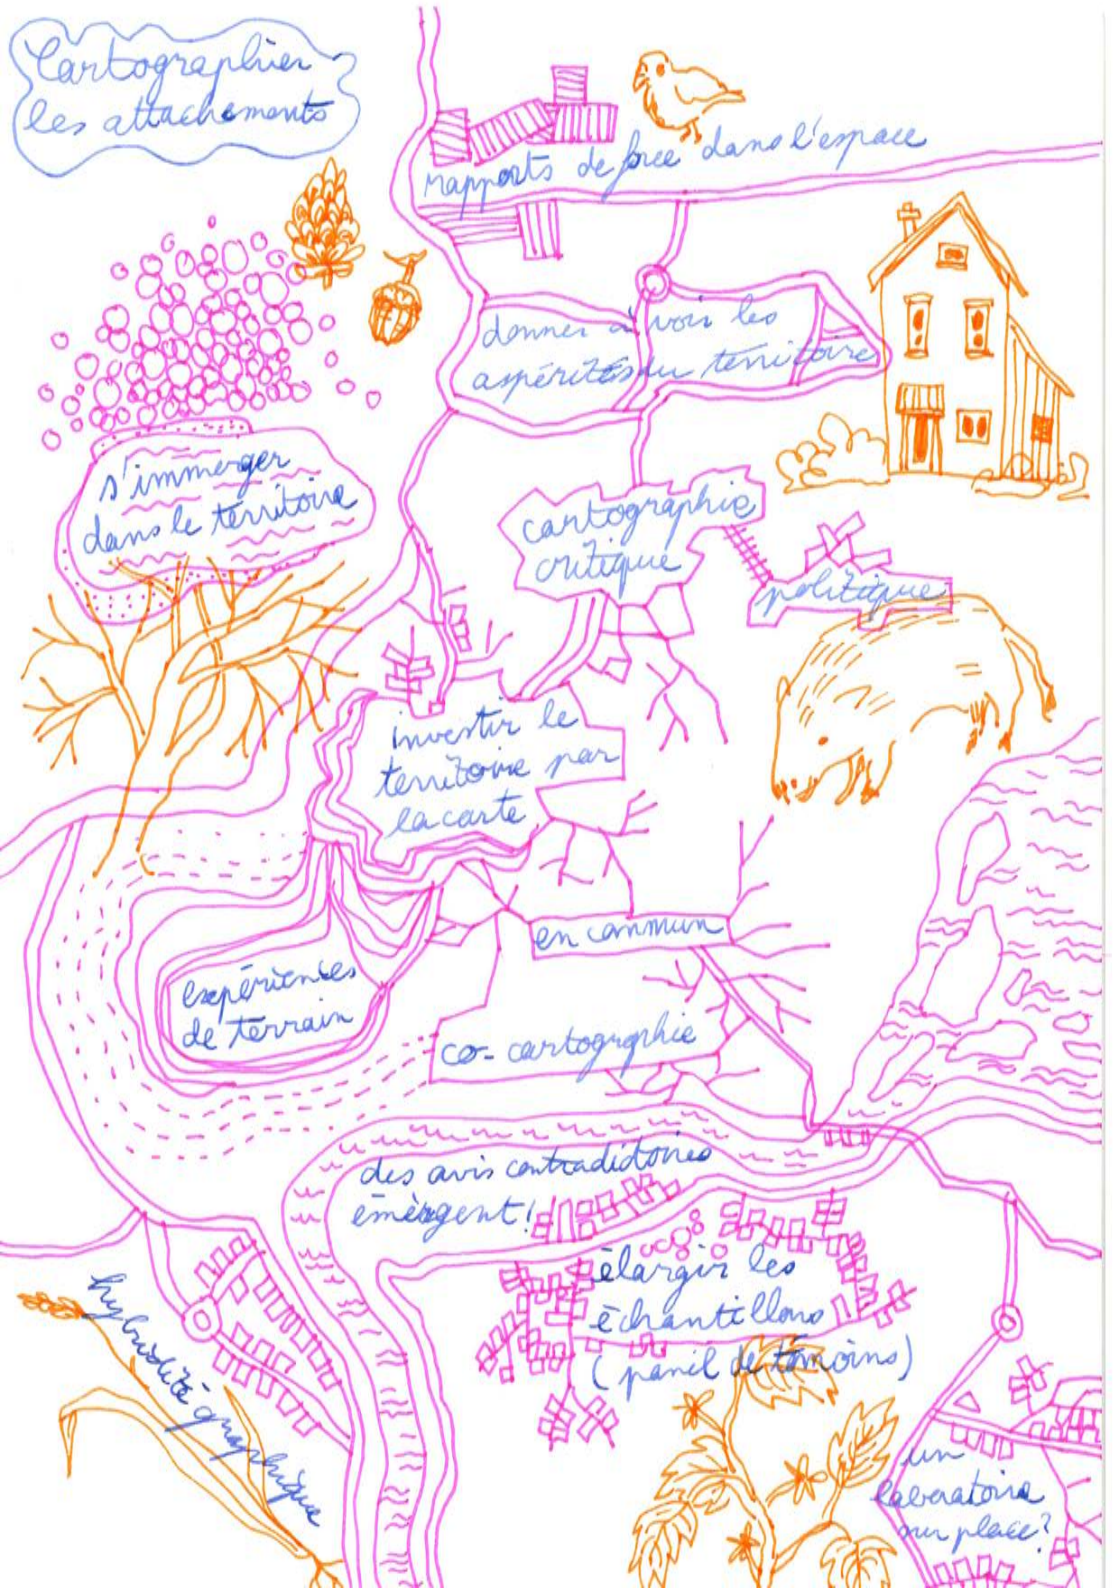 Cartographier
les attachements
rapports de force dans l'espace
donner à voir les
aspérités du territoire
s'immerger
dans le territoire
cartographie
critique
politique
investir le
territoire par
la carte
en commun
expériences
de terrain
co-cartogrphie
des avis contradictoires
émergent!
élargir les
échantillons
(panil de témoins)
hybridité graphique
un
laboratoire
sur place?